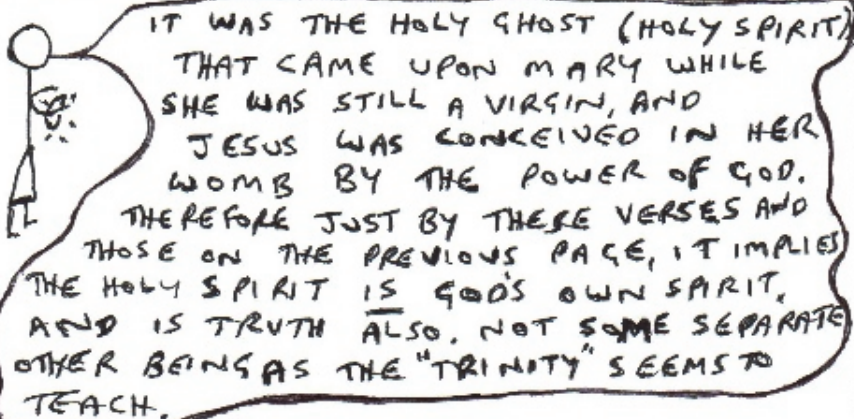 IT WAS THE HOLY GHOST (HOLY SPIRIT)
THAT CAME UPON MARY WHILE
SHE WAS STILL A VIRGIN, AND
JESUS WAS CONCEIVED IN HER
WOMB BY THE POWER OF GOD.
THEREFORE JUST BY THESE VERSES AND
THOSE ON THE PREVIOUS PAGE, IT IMPLIES
THE HOLY SPIRIT IS GOD'S OWN SPIRIT,
AND IS TRUTH ALSO. NOT SOME SEPARATE
OTHER BEING AS THE "TRINITY" SEEMS TO
TEACH.